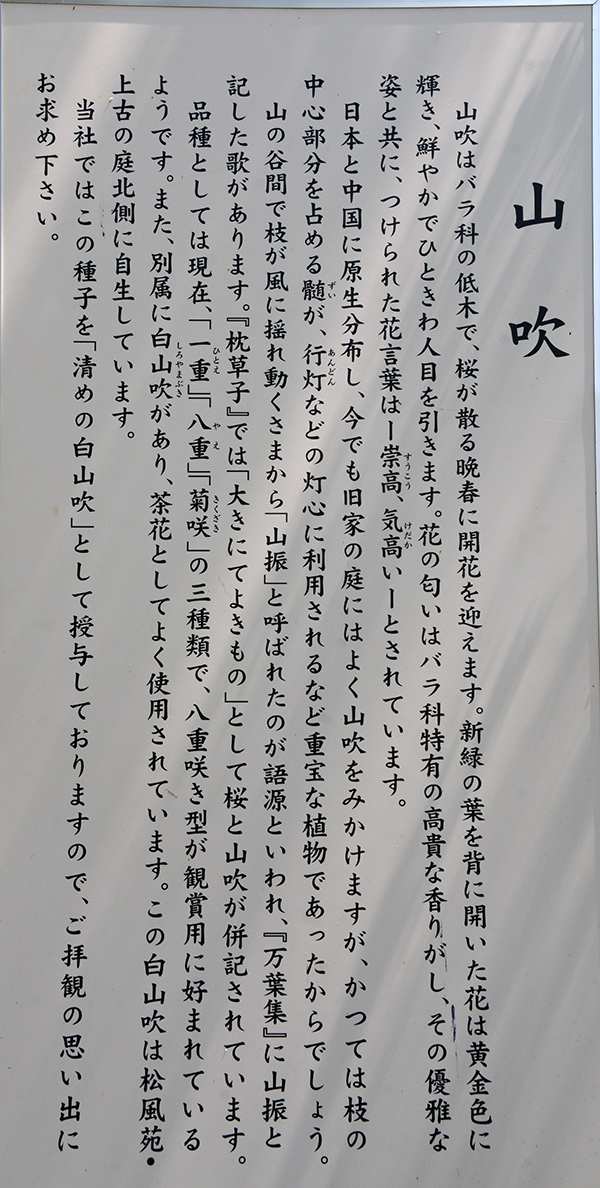 山吹
山吹はバラ科の低木で、桜が散る晩春に開花を迎えます。新緑の葉を背に開いた花は黄金色に
輝き、鮮やかでひときわ人目を引きます。花の匂いはバラ科特有の高貴な香りがし、その優雅な
姿と共に、つけられた花言葉はー崇高、気高いーとされています。
日本と中国に原生分布し、今でも旧家の庭にはよく山吹をみかけますが、かつては枝の
中心部分を占める髄が、行灯などの灯心に利用されるなど重宝な植物であったからでしょう。
山の谷間で枝が風に揺れ動くさまから「山振」と呼ばれたのが語源といわれ、『万葉集』に山振と
記した歌があります。『枕草子』では「大きにてよきもの」として桜と山吹が併記されています。
品種としては現在、「一重」「八重」「菊咲」の三種類で、八重咲き型が観賞用に好まれている
ようです。また、別属に白山吹があり、茶花としてよく使用されています。この白山吹は松風苑・
上古の庭北側に自生しています。
当社ではこの種子を「清めの白山吹」として授与しておりますので、ご拝観の思い出に
お求め下さい。